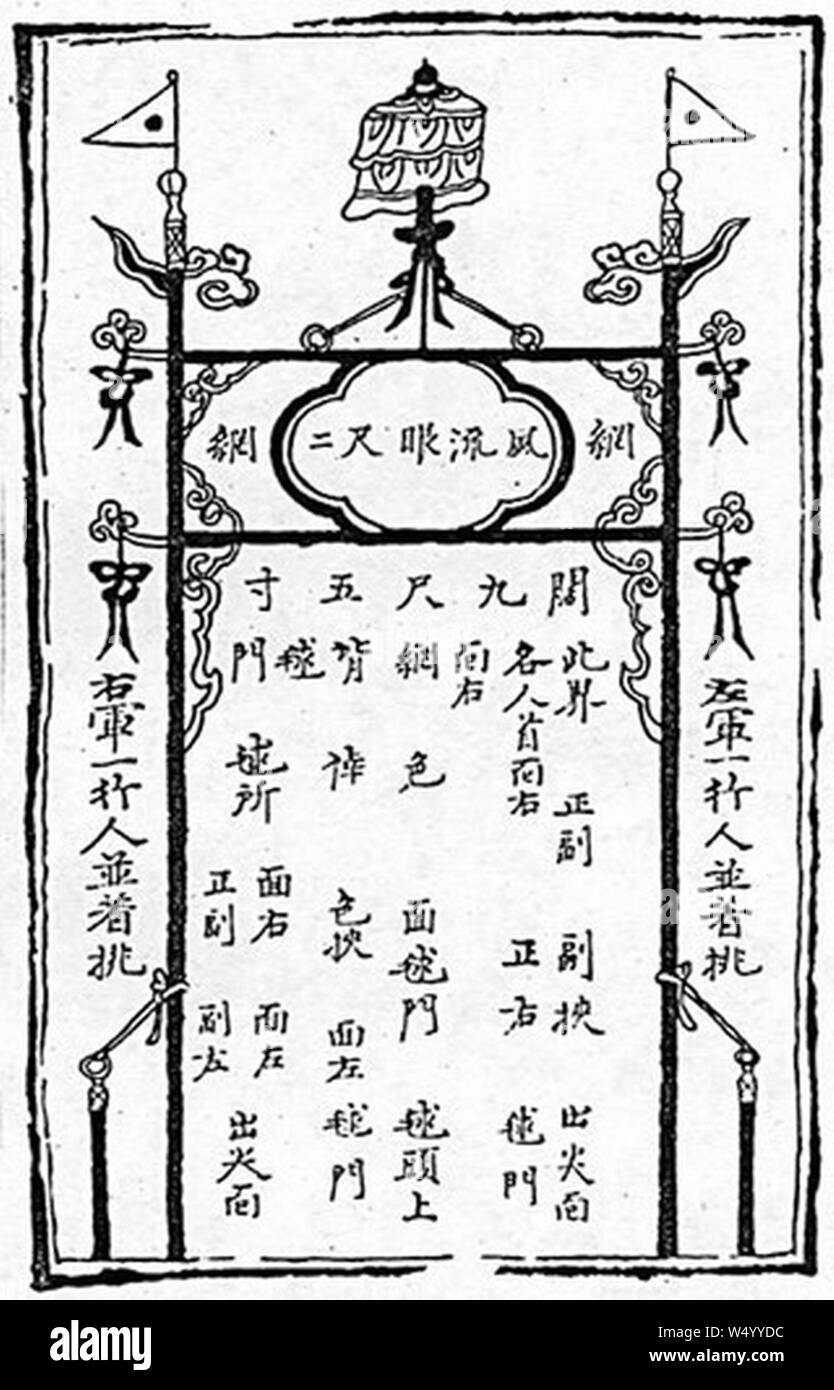 網 風流眼尺二 網
闊九尺五寸
左軍一行人並着挑
此界 正副 副挾 出尖面
各人首面右 正右 毬門
面右
網 色 面毬門 毬頭上
背 色挾 面左毬門
毬
門 毬所
面右 面左
正副 副左
出尖面
右軍一行人並着挑
alamy
Image ID: W4YYDC
www.alamy.com